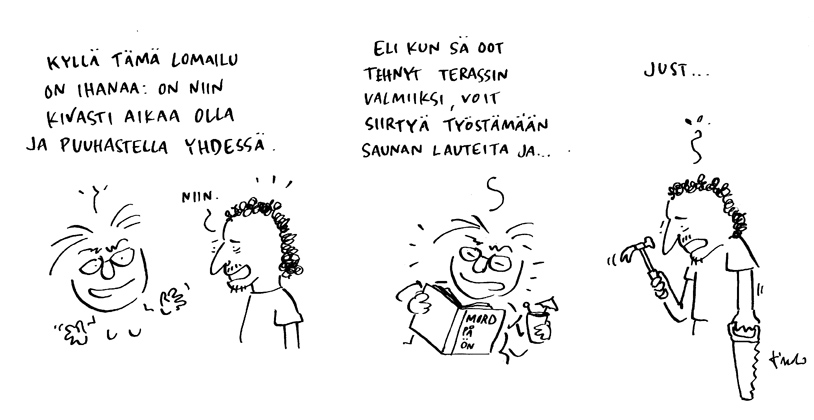 KYLLÄ TÄMÄ LOMAILU
ON IHANAA: ON NIIN
KIVASTI AIKAA OLLA
JA PUUHASTELLA YHDESSÄ.
NIIN.
ELI KUN SÄ OOT
TEHNYT TERASSIN
VALMIIKSI, VOIT
SIIRTYÄ TYÖSTÄMÄÄN
SAUNAN LAUTEITA JA...
MORD
PÅ
ÖN
JUST...